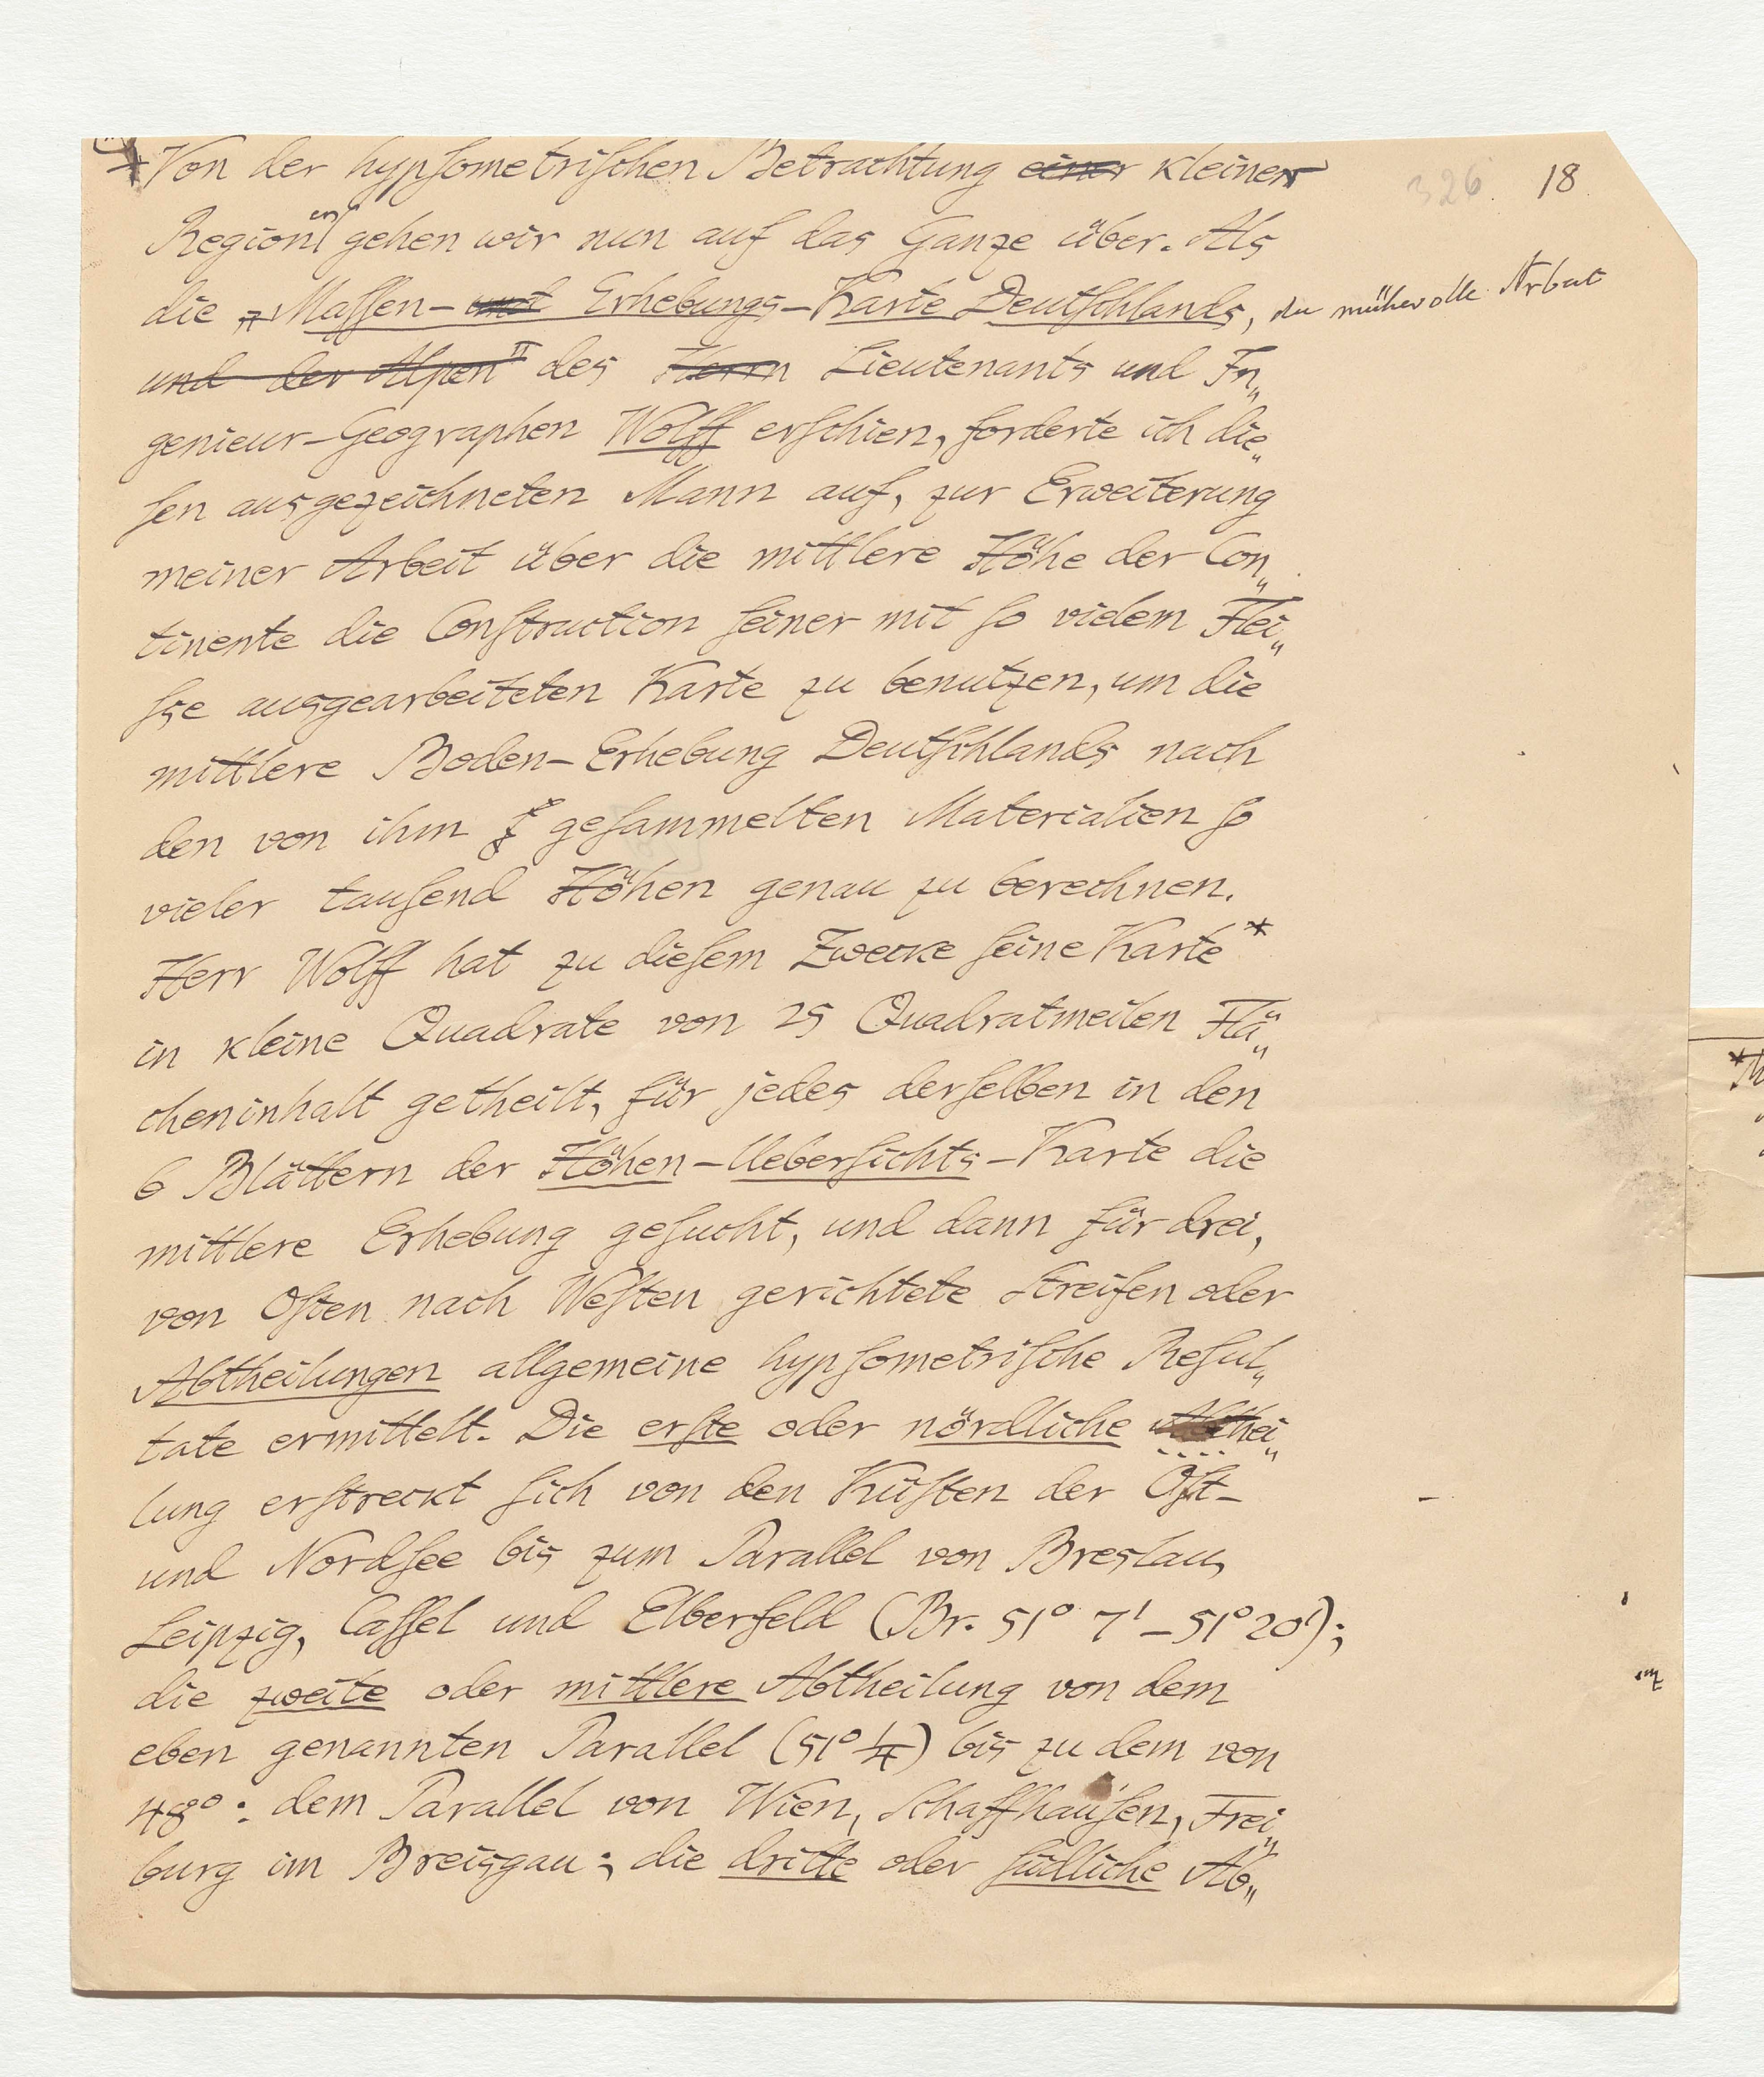 326. 18
Von der hypsometrischen Betrachtung einer kleiner
Regionen gehen wir nun auf das Ganze über. Als
die „Massen- und Erhebungs-Karte Deutschlands, die mühevolle Arbeit
und der Alpen" des Herrn Lieutenants und In„
genieur-Geographen Wolff erschien, forderte ich die„
sen ausgezeichneten Mann auf, zur Erweiterung
meiner Arbeit über die mittlere Höhe der Con„
tinente die Construction seiner mit so vielem Flei„
sse ausgearbeiteten Karte zu benutzen, um die
mittlere Boden-Erhebung Deutschlands nach
den von ihm gesammelten Materialien so
vieler tausend Höhen genau zu berechnen.
Herr Wolff hat zu diesem Zwecke seine Karte*
in kleine Quadrate von 25 Quadratmeilen Flä„
cheninhalt getheilt, für jedes derselben in den
6 Blättern der Höhen-Uebersichts-Karte die
mittlere Erhebung gesucht, und dann für drei,
von Osten nach Westen gerichtete Streifen oder
Abtheilungen allgemeine hypsometrische Resul„
tate ermittelt. Die erste oder nördliche Abthei„
lung erstreckt sich von den Küsten der Ost-
und Nordsee bis zum Parallel von Breslau,
Leipzig, Cassel und Elberfeld (Br. 51° 7' – 51° 20');
die zweite oder mittlere Abtheilung von dem
eben genannten Parallel (51° 1/4) bis zu dem von
48°: dem Parallel von Wien, Schaffhausen, Frei„
burg im Breisgau; die dritte oder südliche Ab„